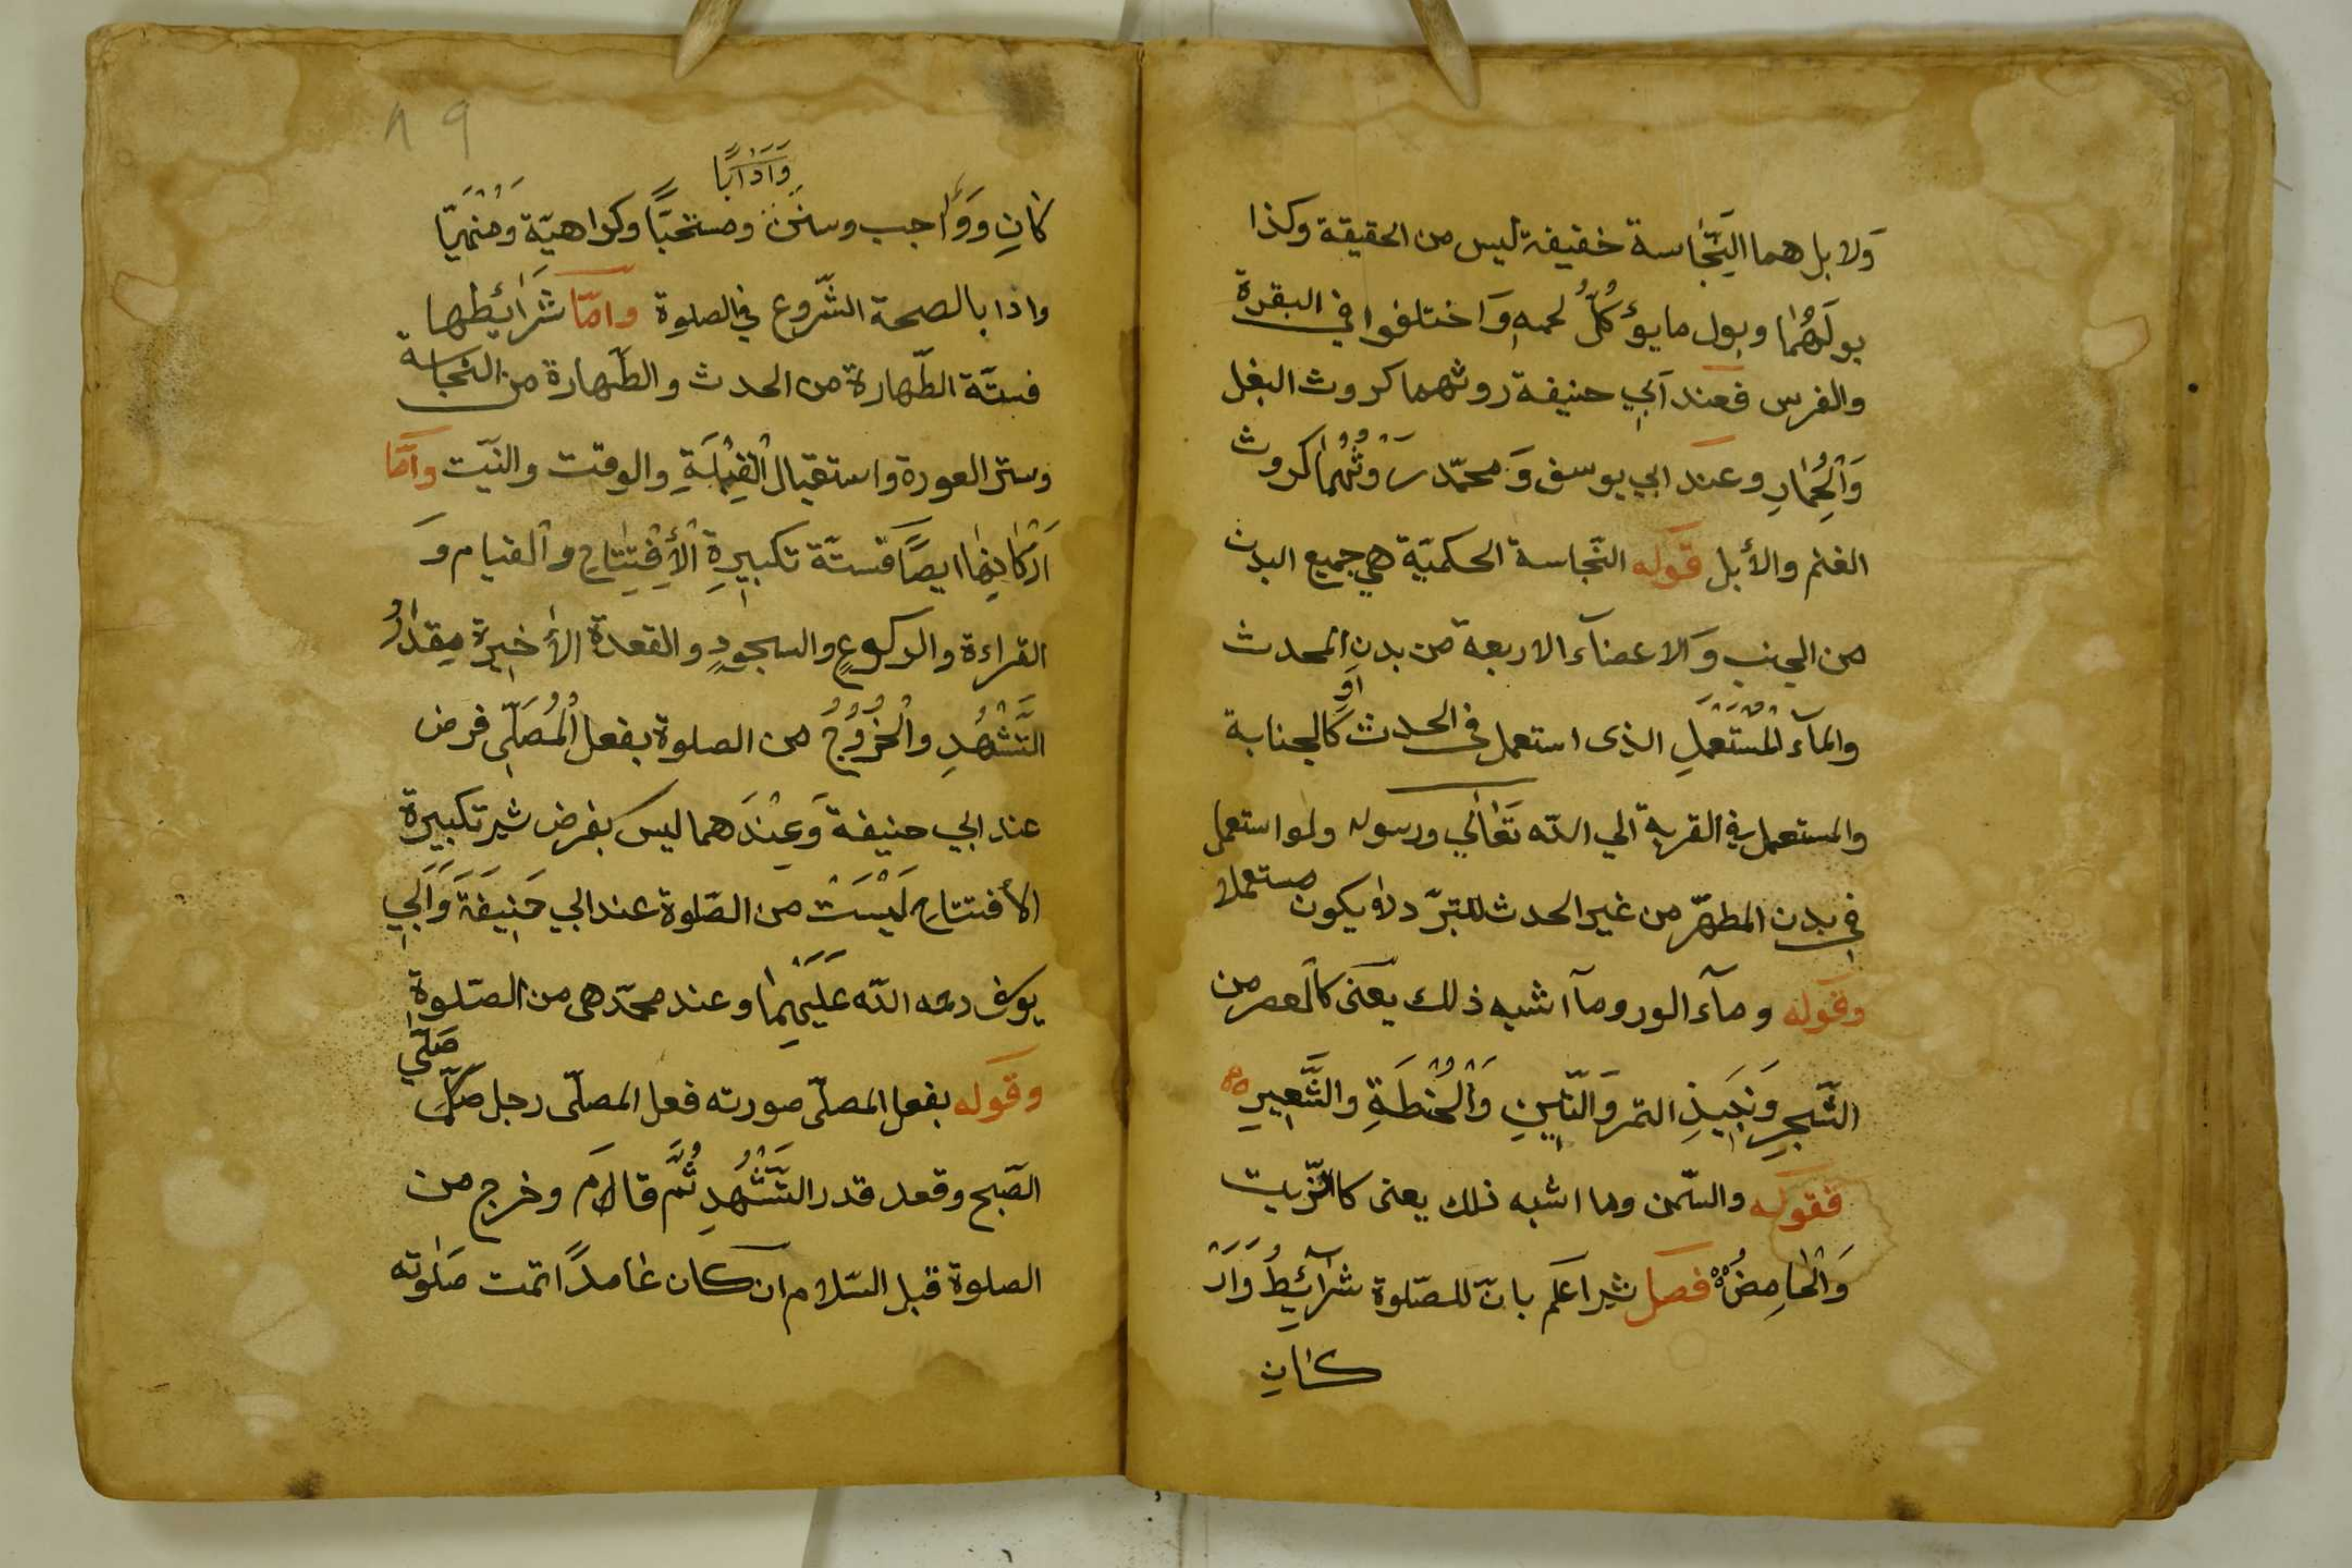 وَلا بل هما النِّجَاسة خفيفة ليس من الحقيقة وكذا
بولَهُمَا وبول ما يؤكلُ لحمهِ وَاختلفوا في البقرة
والفرس فعند ابي حنيفة روثهما كروث البغل
وَالْحِمَارِ وعند ابي يوسف وَمحمّد رَوْثُهُمَا كروث
الغنم والأبل قوله النّجاسة الحكميّة هي جميع البدن
من الجنب وَالاعضآء الاربعة من بدنِ المحدث
والمآء الْمُسْتَعْمَلِ الذى استعمل في الحدث اَو كَالجنابة
والمستعمل القربة الي اللّه تَعَالَي ورسوله ولو استعمل
في بدن المطهّر من غير الحدث للتبرّد لا يكون مستعملا
وقوله ومآء الورد ومآ اشبه ذلك يعنى كالعصر من
الشّجرِ وَنَبِيذِ التمر وَالتّينِ وَالْحُنْطَةِ والشَّعِيرِ
فقوله والسّمن وما اشبه ذلك يعنى كالزّيت
وَالْحَامِضُ فصل شير اعلم بانّ للصّلوة شرآئِطُ وَاَرْ
كانِ
وَآدَابًا
كانِ وَوَاجب وسنن ومستحبًّا وكراهيّة وَمَنْهِيًّا
واذا بالصحة الشّروع في الصلوة وامّا شَرَائِطها
فستّة الطّهارة من الحدث والطّهارة من النجاسة
وستر العورة واستقبال الْقِبْلَةِ والوقت والنيّت وامّا
اَرْكَانِهَا ايضًا فستّة تكبيرةِ الْأِفْتِتَاحِ والقيام وَ
القراءة والركوعِ والسجودِ والقعدة الأخيرة مِقْدَارُ
التَّشَهُّدِ والْخُرُوجُ من الصلوة بفعل الْمُصَلّي فرض
عند ابي حنيفة وَعِنْدَهما ليس بفرض شير تكبيرة
الأفتتاح لَيْسَتْ من الصّلوة عند ابي حَنِيفَةَ وَاَبِي
يوسف رحمه اللّه عَلَيْهِمَا وعند محمّد هى من الصّلوةِ
صَلّي
وقوله بفعل المصلّى صورته فعل المصلّى رجل صلّى
الصّبح وقعد قدر التَّشَهُّدِ ثُمَّ قالامَ وخرج من
الصلوة قبل السّلام ان كان عَامدًا تمت صَلوته